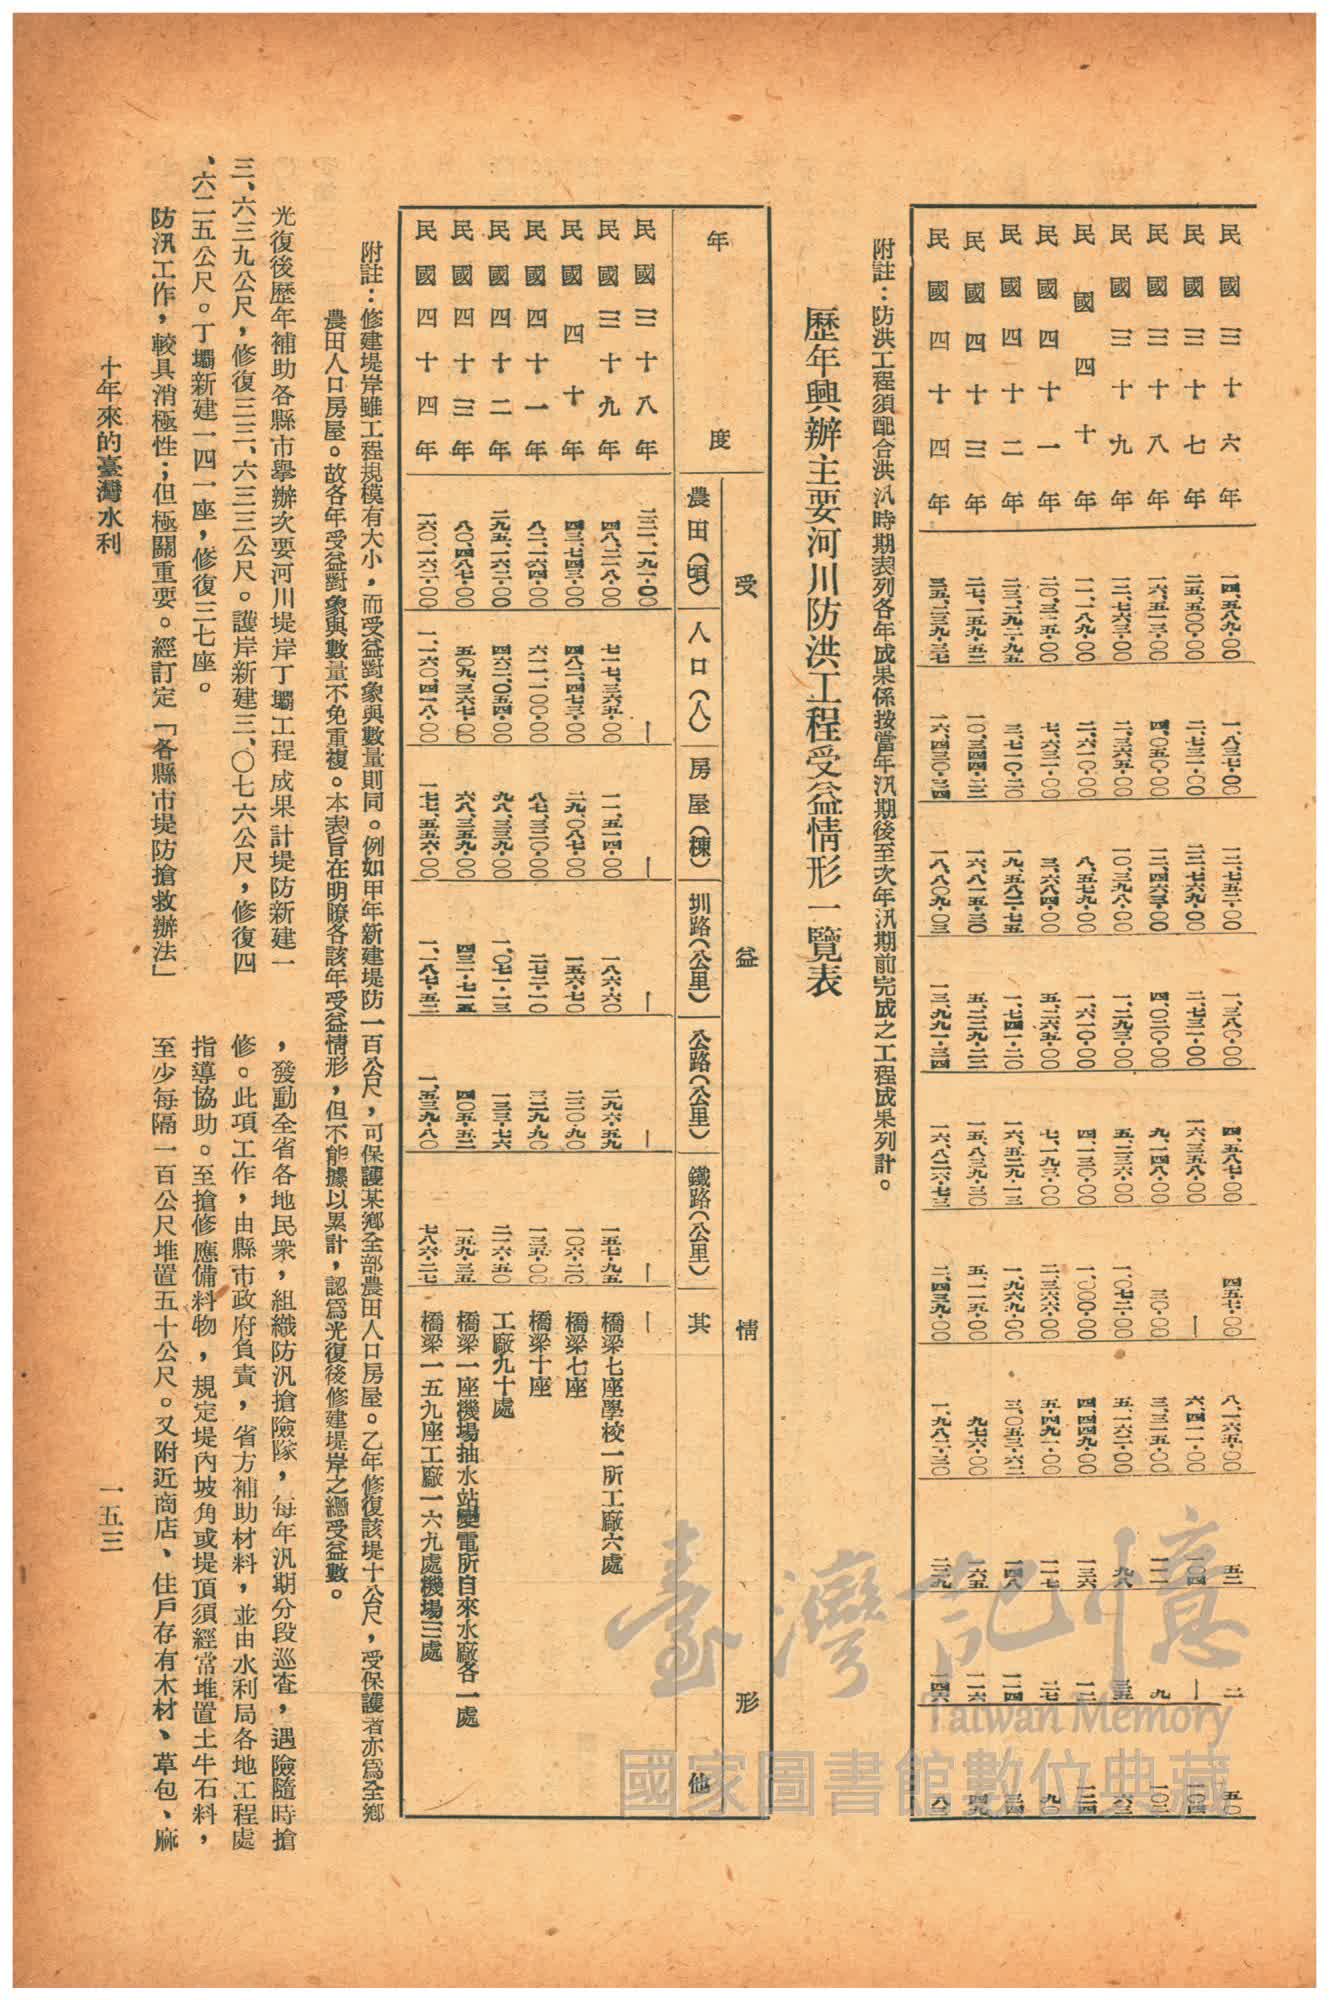 民國三十六年 一四、五八九·〇〇 一、八三七·〇〇 一二、七五二·〇〇 一、三八〇·〇〇 四、五八七·〇〇 四五七·〇〇 八、一六五·〇〇 五二 二 五〇
民國三十七年 二五、五〇〇·〇〇 二、七三一·〇〇 二二、七六九·〇〇 二、七三一·〇〇 一六、三五八·〇〇 — 六、四一一·〇〇 一〇四 — 一〇四
民國三十八年 一六、五一三·〇〇 四、〇五〇·〇〇 一二、四六三·〇〇 四、〇二〇·〇〇 九、一四八·〇〇 三〇·〇〇 三、三一五·〇〇 一一二 九 一〇三
民國三十九年 一二、七六三·〇〇 二、三六五·〇〇 一〇、三九八·〇〇 一、二九三·〇〇 五、二三六·〇〇 一、〇七二·〇〇 五、一六二·〇〇 九八 三五 六三
民國四十年 一一、一八九·〇〇 二、六一〇·〇〇 八、五七九·〇〇 一、六一〇·〇〇 四、一三〇·〇〇 一、〇〇〇·〇〇 四、四四九·〇〇 一三六 一二 一二四
民國四十一年 二〇、三一五·〇〇 七、六三一·〇〇 一二、六八四·〇〇 五、二六五·〇〇 七、一九三·〇〇 二、三六六·〇〇 五、四九一·〇〇 一一七 二七 九〇
民國四十二年 二三、二九二·九五 三、七一〇·二〇 一九、五八二·七五 一、七四一·二〇 一六、五二九·一三 一、九六九·〇〇 三、〇五三·六二 一四八 一一四 三四
民國四十三年 二七、一五九·五二 一〇、三四四·二二 一六、八一五·三〇 五、二二九·二二 一五、八三九·三〇 五、一一五·〇〇 九七六·〇〇 一六五 一一六 四九
民國四十四年 三五、二三九·三七 一六、四三〇·三四 一八、八〇九·〇三 一三、九九一·三四 一六、八二六·七三 二、四三九·〇〇 一、九八二·三〇 二二九 一四六 八三
附註：防洪工程須配合洪汛時期表列各年成果係按當年汛期後至次年汛期前完成之工程成果列計。
歷年興辦主要河川防洪工程受益情形一覽表
年度 受益情形
農田（頃） 人口（人） 房屋（棟） 圳路（公里） 公路（公里） 鐵路（公里） 其他
民國三十八年 三二、一九一·〇〇 — — — — — —
民國三十九年 四八、二一八·〇〇 七一七、三六五·〇〇 一一、五一四·〇〇 一八六·六〇 二九六·五九 一五七·九五 橋梁七座學校一所工廠六處
民國四十年 四三、七四三·〇〇 四八二、四七三·〇〇 二九、〇八七·〇〇 一五六·七〇 二三〇·九〇 一〇六·二〇 橋梁七座
民國四十一年 八二、一六四·〇〇 六二一、一〇〇·〇〇 八七、三二〇·〇〇 二七二·一〇 三二九·九〇 一三五·〇〇 橋梁十座
民國四十二年 二九五、一六二·〇〇 四六二、〇五四·〇〇 九八、三三九·〇〇 一、〇七一·一三 一三三·七六 二一六·五〇 工廠九十處
民國四十三年 八〇、四八七·〇〇 五〇九、三六七·〇〇 六八、三五九·〇〇 四三一·七一五 四〇五·五二 一五九·三五 橋梁一座機場抽水站變電所自來水廠各一處
民國四十四年 一六〇、一六二·〇〇 一、一六〇、四一八·〇〇 一七七、五五六·〇〇 一、一八七·五二 一、五三九·八〇 七八六·二七 橋梁一五九座工廠一六九處機場三處
附註：修建堤岸雖工程規模有大小，而受益對象與數量則同。例如甲年新建堤防一百公尺，可保護某鄉全部農田人口房屋。乙年修復該堤十公尺，受保護者亦爲全鄉
農田人口房屋。故各年受益對象與數量不免重複。本表旨在明瞭各該年受益情形，但不能據以累計，認爲光復後修建堤岸之總受益數。
光復後歷年補助各縣市舉辦次要河川堤岸丁壩工程成果計堤防新建一
三、六三九公尺，修復三三、六三三公尺。護岸新建三、〇七六公尺，修復四
、六二五公尺。丁壩新建一四一座，修復三七座。
防汛工作，較具消極性；但極關重要。經訂定「各縣市堤防搶救辦法」
，發動全省各地民衆，組織防汛搶險隊，每年汛期分段巡查，遇險隨時搶
修。此項工作，由縣市政府負責，省方補助材料，並由水利局各地工程處
指導協助。至搶修應備料物，規定堤內坡角或堤頂須經常堆置土牛石料，
至少每隔一百公尺堆置五十公尺。又附近商店、住戶存有木材、草包、麻
十年來的臺灣水利
一五三
臺灣記憶
Taiwan Memory
國家圖書館數位典藏